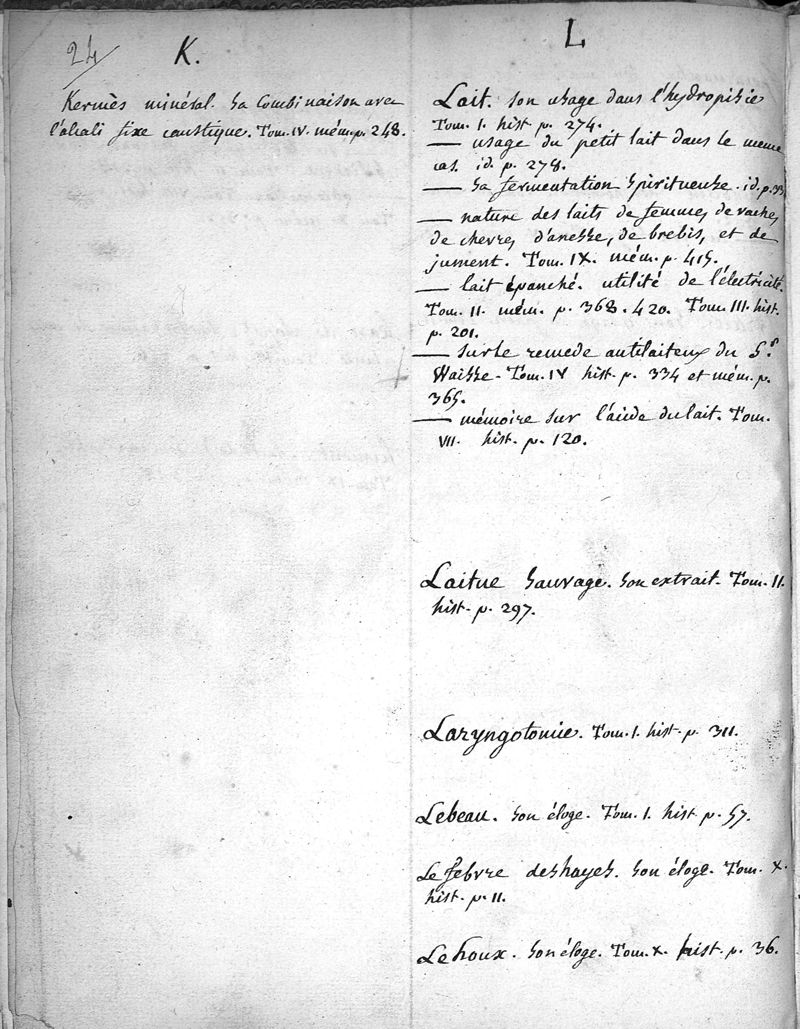 24
K.
Kermès minéral. Sa Combinaison avec
l'alcali fixe caustique. Tom. IV. mém. p. 248.
L
Lait. son usage dans l'hydropisie
Tom. I. hist p. 274.
— usage du petit lait dans le meme
cas. id. p. 278.
— Sa fermentation Spiritueuse. id. p.
— nature des laits de femme, de vache,
de chevre, d'anesse, de brebis, et de
jument. Tom. IX. mém. p. 415.
— lait épanché. utilité de l'électricité.
Tom. II. mém. p. 368. 420. Tom. III. hist.
p. 201.
— sur le remede antilaiteux du Sr.
Waisse. Tom. IV hist. p. 334 et mém. p.
365.
— mémoire sur l'acide du lait. Tom.
VII. hist. p. 120.
Laitue Sauvage. Son extrait. Tom. II.
hist. p. 297.
Laryngotomie. Tom. I. hist. p. 311.
Lebeau. Son éloge. Tom. I. hist p. 57.
Le febvre deshayes. Son éloge. Tom. X.
hist. p. 11.
Le houx. Son éloge. Tom. X. hist. p. 36.